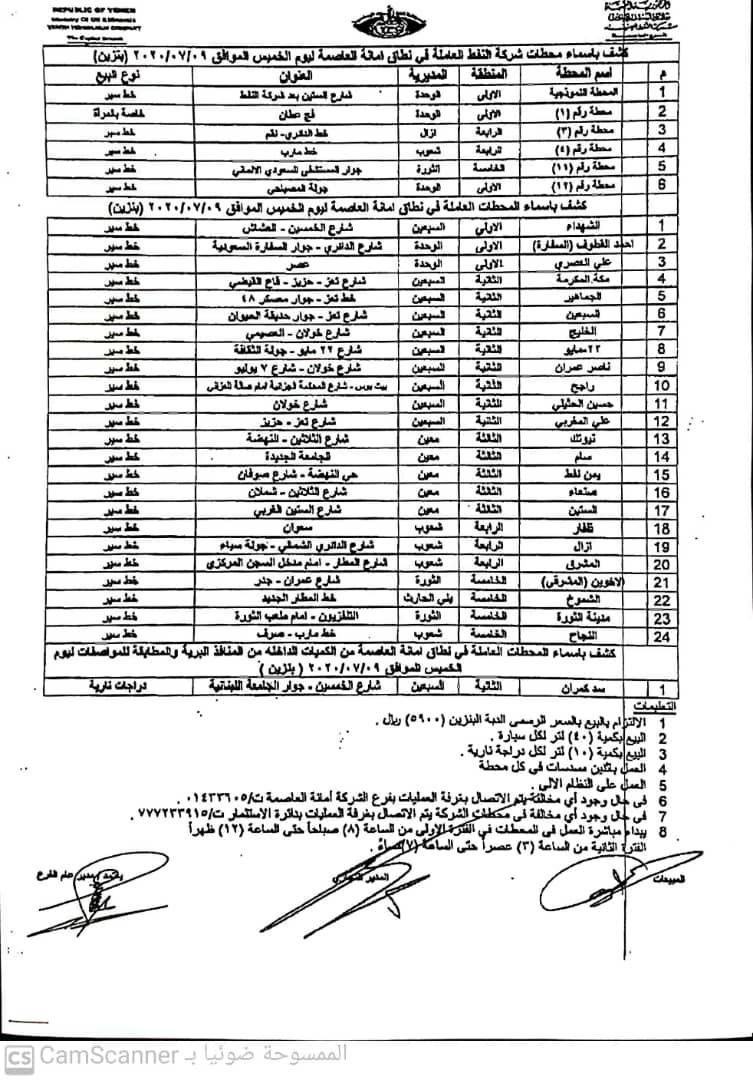 REPUBLIC OF YEMEN
Ministry Of Oil & Minerals
كشف باسماء محطات شركة النفط العاملة في نطاق امانة العاصمة ليوم الخميس الموافق ٢٠٢٠/٠٧/٠٩ (بنزين)
م اسم المحطة المنطقة المديرية العنوان نوع البيع
1 المحطة النموذجية الاولى الوحدة شارع الستين بعد شركة النفط خط سير
2 محطة رقم (١) الاولى الوحدة فج عطان خاصة بالمرأة
3 محطة رقم (٣) الرابعة ازال خط الدائري- نقم خط سير
4 محطة رقم (٤) الرابعة شعوب خط مارب خط سير
5 محطة رقم (١١) الخامسة الثورة جوار المستشفى السعودي الالماني خط سير
6 محطة رقم (١٢) الاولى الوحدة جولة المصباحي خط سير
كشف باسماء المحطات العاملة في نطاق امانة العاصمة ليوم الخميس الموافق ٢٠٢٠/٠٧/٠٩ (بنزين)
1 الشهداء الاولي السبعين شارع الخمسين - العشاش خط سير
2 احمد القطوف (السفارة) الاولى الوحدة شارع الدائري - جوار السفارة السعودية خط سير
3 علي العصري الاولى الوحدة عصر خط سير
4 مكة المكرمة الثانية السبعين شارع تعز - حزيز - قاع القيضي خط سير
5 الجماهير الثانية السبعين خط تعز - جوار معسكر ٤٨ خط سير
6 السبعين الثانية السبعين شارع تعز - جوار حديقة الحيوان خط سير
7 الخليج الثانية السبعين شارع خولان - العصيمي خط سير
8 ٢٢مايو الثانية السبعين شارع ٢٢ مايو - جولة الثقافة خط سير
9 ناصر عمران الثانية السبعين شارع خولان - شارع ٧ يوليو خط سير
10 راجح الثانية السبعين بيت بوس - شارع المعلمة الجزائية امام صالة خط سير
11 حسين الثانية السبعين شارع خولان خط سير
12 علي المغربي الثانية السبعين شارع تعز - حزيز خط سير
13 الثالثة معين شارع الثلاثين - النهضة خط سير
14 سام الثالثة معين الجامعة الجديدة خط سير
15 يمن نفط الثالثة معين حي النهضة - شارع صوفان خط سير
16 صنعاء الثالثة معين شارع الثلاثين - شملان خط سير
17 الستين الثالثة معين شارع الستين الغربي خط سير
18 ظفار الرابعة شعوب سعوان خط سير
19 ازال الرابعة شعوب شارع الدائري الشمالي - جولة سباء خط سير
20 المشرق الرابعة شعوب شارع المطار - امام مدخل السجن المركزي خط سير
21 الاخوين (المشرقي) الخامسة الثورة شارع عمران - جدر خط سير
22 الشموخ الخامسة بني الحارث خط المطار الجديد خط سير
23 مدينة الثورة الخامسة الثورة التلفزيون - امام ملعب الثورة خط سير
24 النجاح الخامسة شعوب خط مارب - صرف خط سير
كشف باسماء المحطات العاملة في نطاق امانة العاصمة من الكميات الداخله من المنافذ البرية والمطابقة للمواصفات ليوم
الخميس الموافق ٢٠٢٠/٠٧/٠٩ ( بنزين )
1 سد كمران الثانية السبعين شارع الخمسين - جوار الجامعة اللبنانية دراجات نارية
التعليمات
1 الالتزام بالبيع بالسعر الرسمي الدبة البنزين (٥٩٠٠) ريال .
2 البيع بكمية (٤٠) لتر لكل سيارة .
3 البيع بكمية (١٠) لتر لكل دراجة نارية .
4 العمل مسدسات في كل محطة
5 العمل على النظام الالي .
6 في حال وجود أي مخالفة يتم الاتصال بغرفة العمليات بفرع الشركة أمانة العاصمة ت/٠١٤٣٣٦٠٥
7 في حال وجود أي مخالفة في محطات الشركة يتم الاتصال بغرفة العمليات بدائرة الاستثمار ت/٧٧٧٢٣٣٩١٥
8 يبداء مباشرة العمل في المحطات في الفترة الاولى من الساعة (٨) صباحاً حتى الساعة (١٢) ظهراً
الفترة الثانية من الساعة (٣) عصراً حتى الساعة (٧)مساءً .
المبيعات المدير التجاري مدير عام الفرع
CS CamScanner الممسوحة ضوئيا بـ